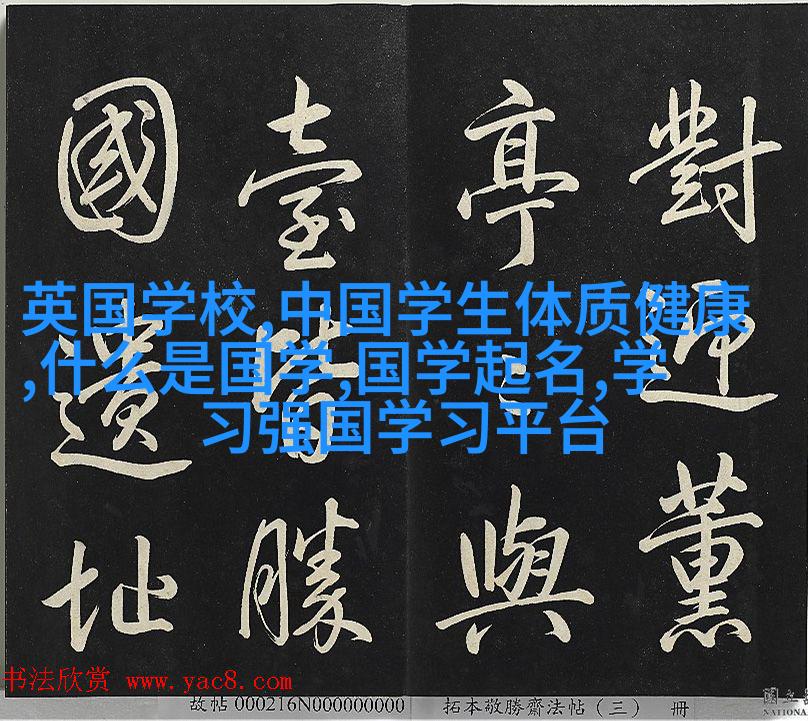 對迎薰
亭與
臺皆勝
國遺址
英国学校,中国学生体质健康
,什么是国学,国学起名,学
习强国学习平台
书法欣赏 www.yac8.com
故帖 000216N000000000 拓本敬勝齋法帖（三） 册
國立
NATIONA